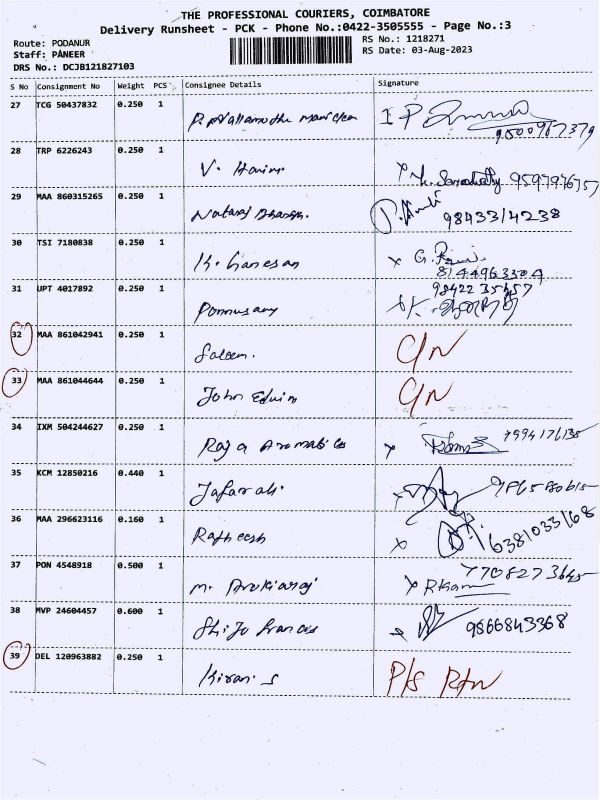 THE PROFESSIONAL COURIERS, COIMBATORE
Delivery Runsheet - PCK - Phone No.:0422-3505555 - Page No.:3
Route: PODANUR RS No.: 1218271
Staff: PANEER RS Date: 03-Aug-2023
DRS No.: DCJB121827103
S No Consignment No Weight PCS Consignee Details Signature
27 TCG 50437832 0.250 1
28 TRP 6226243 0.250 1 V. 
29 MAA 860315265 0.250 1 Nataraj 9843314238
30 TSI 7180838 0.250 1 K. Ganesan G.
8144963304
31 UPT 4017892 0.250 1 Ponnusamy
32 MAA 861042941 0.250 1 Saleem. C/N
33 MAA 861044644 0.250 1 John Edwin C/N
34 IXM 504244627 0.250 1 Raja Aromatics
35 KCM 12850216 0.440 1 Jafarali
36 MAA 296623116 0.160 1 Ratheesh 6381033168
37 PON 4548918 0.500 1 M. Arokiaraj
38 MVP 24604457 0.600 1 Shiju Francis 9866843368
39 DEL 120963882 0.250 1 Kiran S P/S RTN